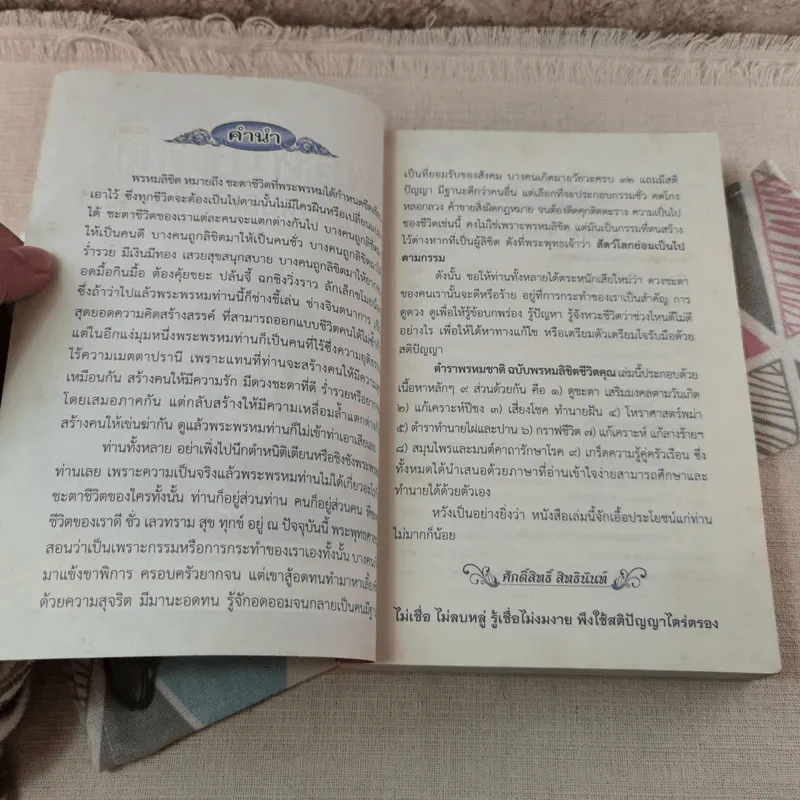 คำนำ
พรหมลิขิต หมายถึง ชะตาชีวิตที่พระพรหมได้กำหนดขีดเขียน
เอาไว้ ซึ่งทุกชีวิตจะต้องเป็นไปตามนั้นไม่มีใครฝืนหรือเปลี่ยนแปลง
ได้ ชะตาชีวิตของเราแต่ละคนจะแตกต่างกันไป บางคนถูกลิขิต
ให้เป็นคนดี บางคนถูกลิขิตมาให้เป็นคนชั่ว บางคนถูกลิขิตมาให้
ร่ำรวย มีเงินมีทอง เสวยสุขสนุกสบาย บางคนถูกลิขิตมาให้ยาก
อดมื้อกินมื้อ ต้องคุ้ยขยะ ปล้นจี้ ฉกชิงวิ่งราว ลักเล็กขโมย
ซึ่งถ้าว่าไปแล้วพระพรหมท่านนี้ก็ช่างขี้เล่น ช่างจินตนาการ
สุดยอดความคิดสร้างสรรค์ ที่สามารถออกแบบชีวิตคนได้ไม่ซ้ำ
แต่ในอีกแง่มุมหนึ่งพระพรหมท่านก็เป็นคนที่ไร้ซึ่งความยุติธรรม
ไร้ความเมตตาปรานี เพราะแทนที่ท่านจะสร้างคนให้มีความ
เหมือนกัน สร้างคนให้มีความรัก มีดวงชะตาที่ดี ร่ำรวยหรือยากจน
โดยเสมอภาคกัน แต่กลับสร้างให้มีความเหลื่อมล้ำแตกต่าง
สร้างคนให้เข่นฆ่ากัน ดูแล้วพระพรหมท่านก็ไม่เข้าท่าเอาเสียเลย
ท่านทั้งหลาย อย่าเพิ่งไปนึกตำหนิติเตียนหรือชิงชังพระพรหม
ท่านเลย เพราะความเป็นจริงแล้วพระพรหมท่านไม่ได้เกี่ยวอะไร
ชะตาชีวิตของใครทั้งนั้น ท่านก็อยู่ส่วนท่าน คนก็อยู่ส่วนคน ที่
ชีวิตของเราดี ชั่ว เลวทราม สุข ทุกข์ อยู่ ณ ปัจจุบันนี้ พระพุทธศาส
สอนว่าเป็นเพราะกรรมหรือการกระทำของเราเองทั้งนั้น บางคน
มาแข้งขาพิการ ครอบครัวยากจน แต่เขาสู้อดทนทำมาหาเลี้ยงชีพ
ด้วยความสุจริต มีมานะอดทน รู้จักอดออมจนกลายเป็นคนมีฐานะ
เป็นที่ยอมรับของสังคม บางคนเกิดมาอวัยวะครบ ๓๒ แถมมีสติ
ปัญญา มีฐานะดีกว่าคนอื่น แต่เลือกที่จะประกอบกรรมชั่ว คดโกง
หลอกลวง ค้าขายสิ่งผิดกฎหมาย จนต้องติดคุกติดตะราง ความเป็นไป
ของชีวิตเช่นนี้ คงไม่ใช่เพราะพรหมลิขิต แต่มันเป็นกรรมที่ตนสร้าง
ไว้ต่างหากที่เป็นผู้ลิขิต ดังที่พระพุทธเจ้าว่า สัตว์โลกย่อมเป็นไป
ตามกรรม
ดังนั้น ขอให้ท่านทั้งหลายได้ตระหนักเสียใหม่ว่า ดวงชะตา
ของคนเรานั้นจะดีหรือร้าย อยู่ที่การกระทำของเราเป็นสำคัญ การ
ดูดวง ดูเพื่อให้รู้ข้อบกพร่อง รู้ปัญหา รู้จังหวะชีวิตว่าช่วงไหนดีไม่ดี
อย่างไร เพื่อให้ได้หาทางแก้ไข หรือเตรียมตัวเตรียมใจรับมือด้วย
สติปัญญา
ตำราพรหมชาติ ฉบับพรหมลิขิตชีวิตคุณ เล่มนี้ประกอบด้วย
เนื้อหาหลักๆ ๙ ส่วนด้วยกัน คือ ๑) ดูชะตา เสริมมงคลตามวันเกิด
๒) แก้เคราะห์ปีชง ๓) เสี่ยงโชค ทำนายฝัน ๔) โหราศาสตร์พม่า
๕) ตำราทำนายไฝและปาน ๖) กราฟชีวิต ๗) แก้เคราะห์ แก้ลางร้ายฯ
๘) สมุนไพรและมนต์คาถารักษาโรค ๙) เกร็ดความรู้คู่ครัวเรือน ซึ่ง
ทั้งหมดได้นำเสนอด้วยภาษาที่อ่านเข้าใจง่ายสามารถศึกษาและ
ทำนายได้ด้วยตัวเอง
หวังเป็นอย่างยิ่งว่า หนังสือเล่มนี้จักเอื้อประโยชน์แก่ท่าน
ไม่มากก็น้อย
ศักดิ์สิทธิ์ สิทธินันท์
ไม่เชื่อ ไม่ลบหลู่ รู้เชื่อไม่งมงาย พึงใช้สติปัญญาไตร่ตรอง